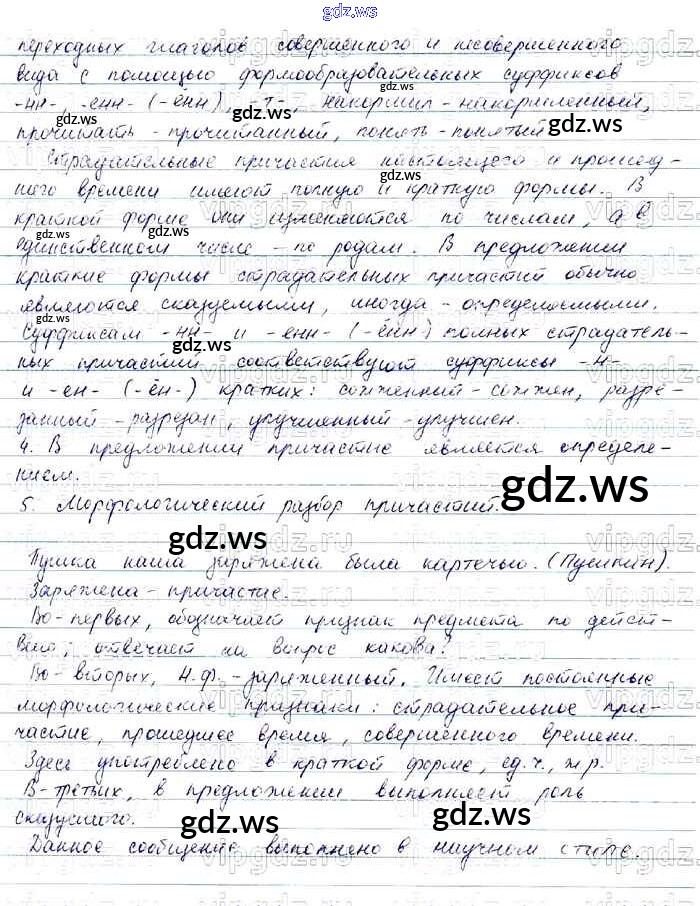 gdz.ws
переходных глаголов совершенного и несовершенного
вида с помощью формообразовательных суффиксов
-нн-, -енн- (-ённ), -т-, накормил - накормленный,
прочитать - прочитанный, понять - понятый
Страдательные причастия настоящего и прошед-
ного времени имеют полную и краткую формы. В
краткой форме они изменяются по числам, а в
единственном числе - по родам. В предложении
краткие формы страдательных причастий обычно
являются сказуемыми, иногда - определяемыми.
Суффиксам -нн- и -енн- (-ённ) полных страдатель-
ных причастий соответствуют суффиксы -н-
и -ен- (-ён-) кратких: сожженный - сожжен, разре-
занный - разрезан, улучшенный - улучшен.
4. В предложении причастие является определе-
нием.
5. Морфологический разбор причастий.
Пушка наша заряжена была картечью. (Пушкин).
Заряжена - причастие.
Во-первых, обозначает признак предмета по дейст-
вию; отвечает на вопрос какова?
Во-вторых, Н.ф. - заряженный. Имеет постоянные
морфологические признаки: страдательное при-
частие, прошедшее время, совершенного времени.
Здесь употреблено в краткой форме, ед.ч., ж.р.
В-третьих, в предложении выполняет роль
сказуемого.
Данное сообщение выполнено в научном стиле.